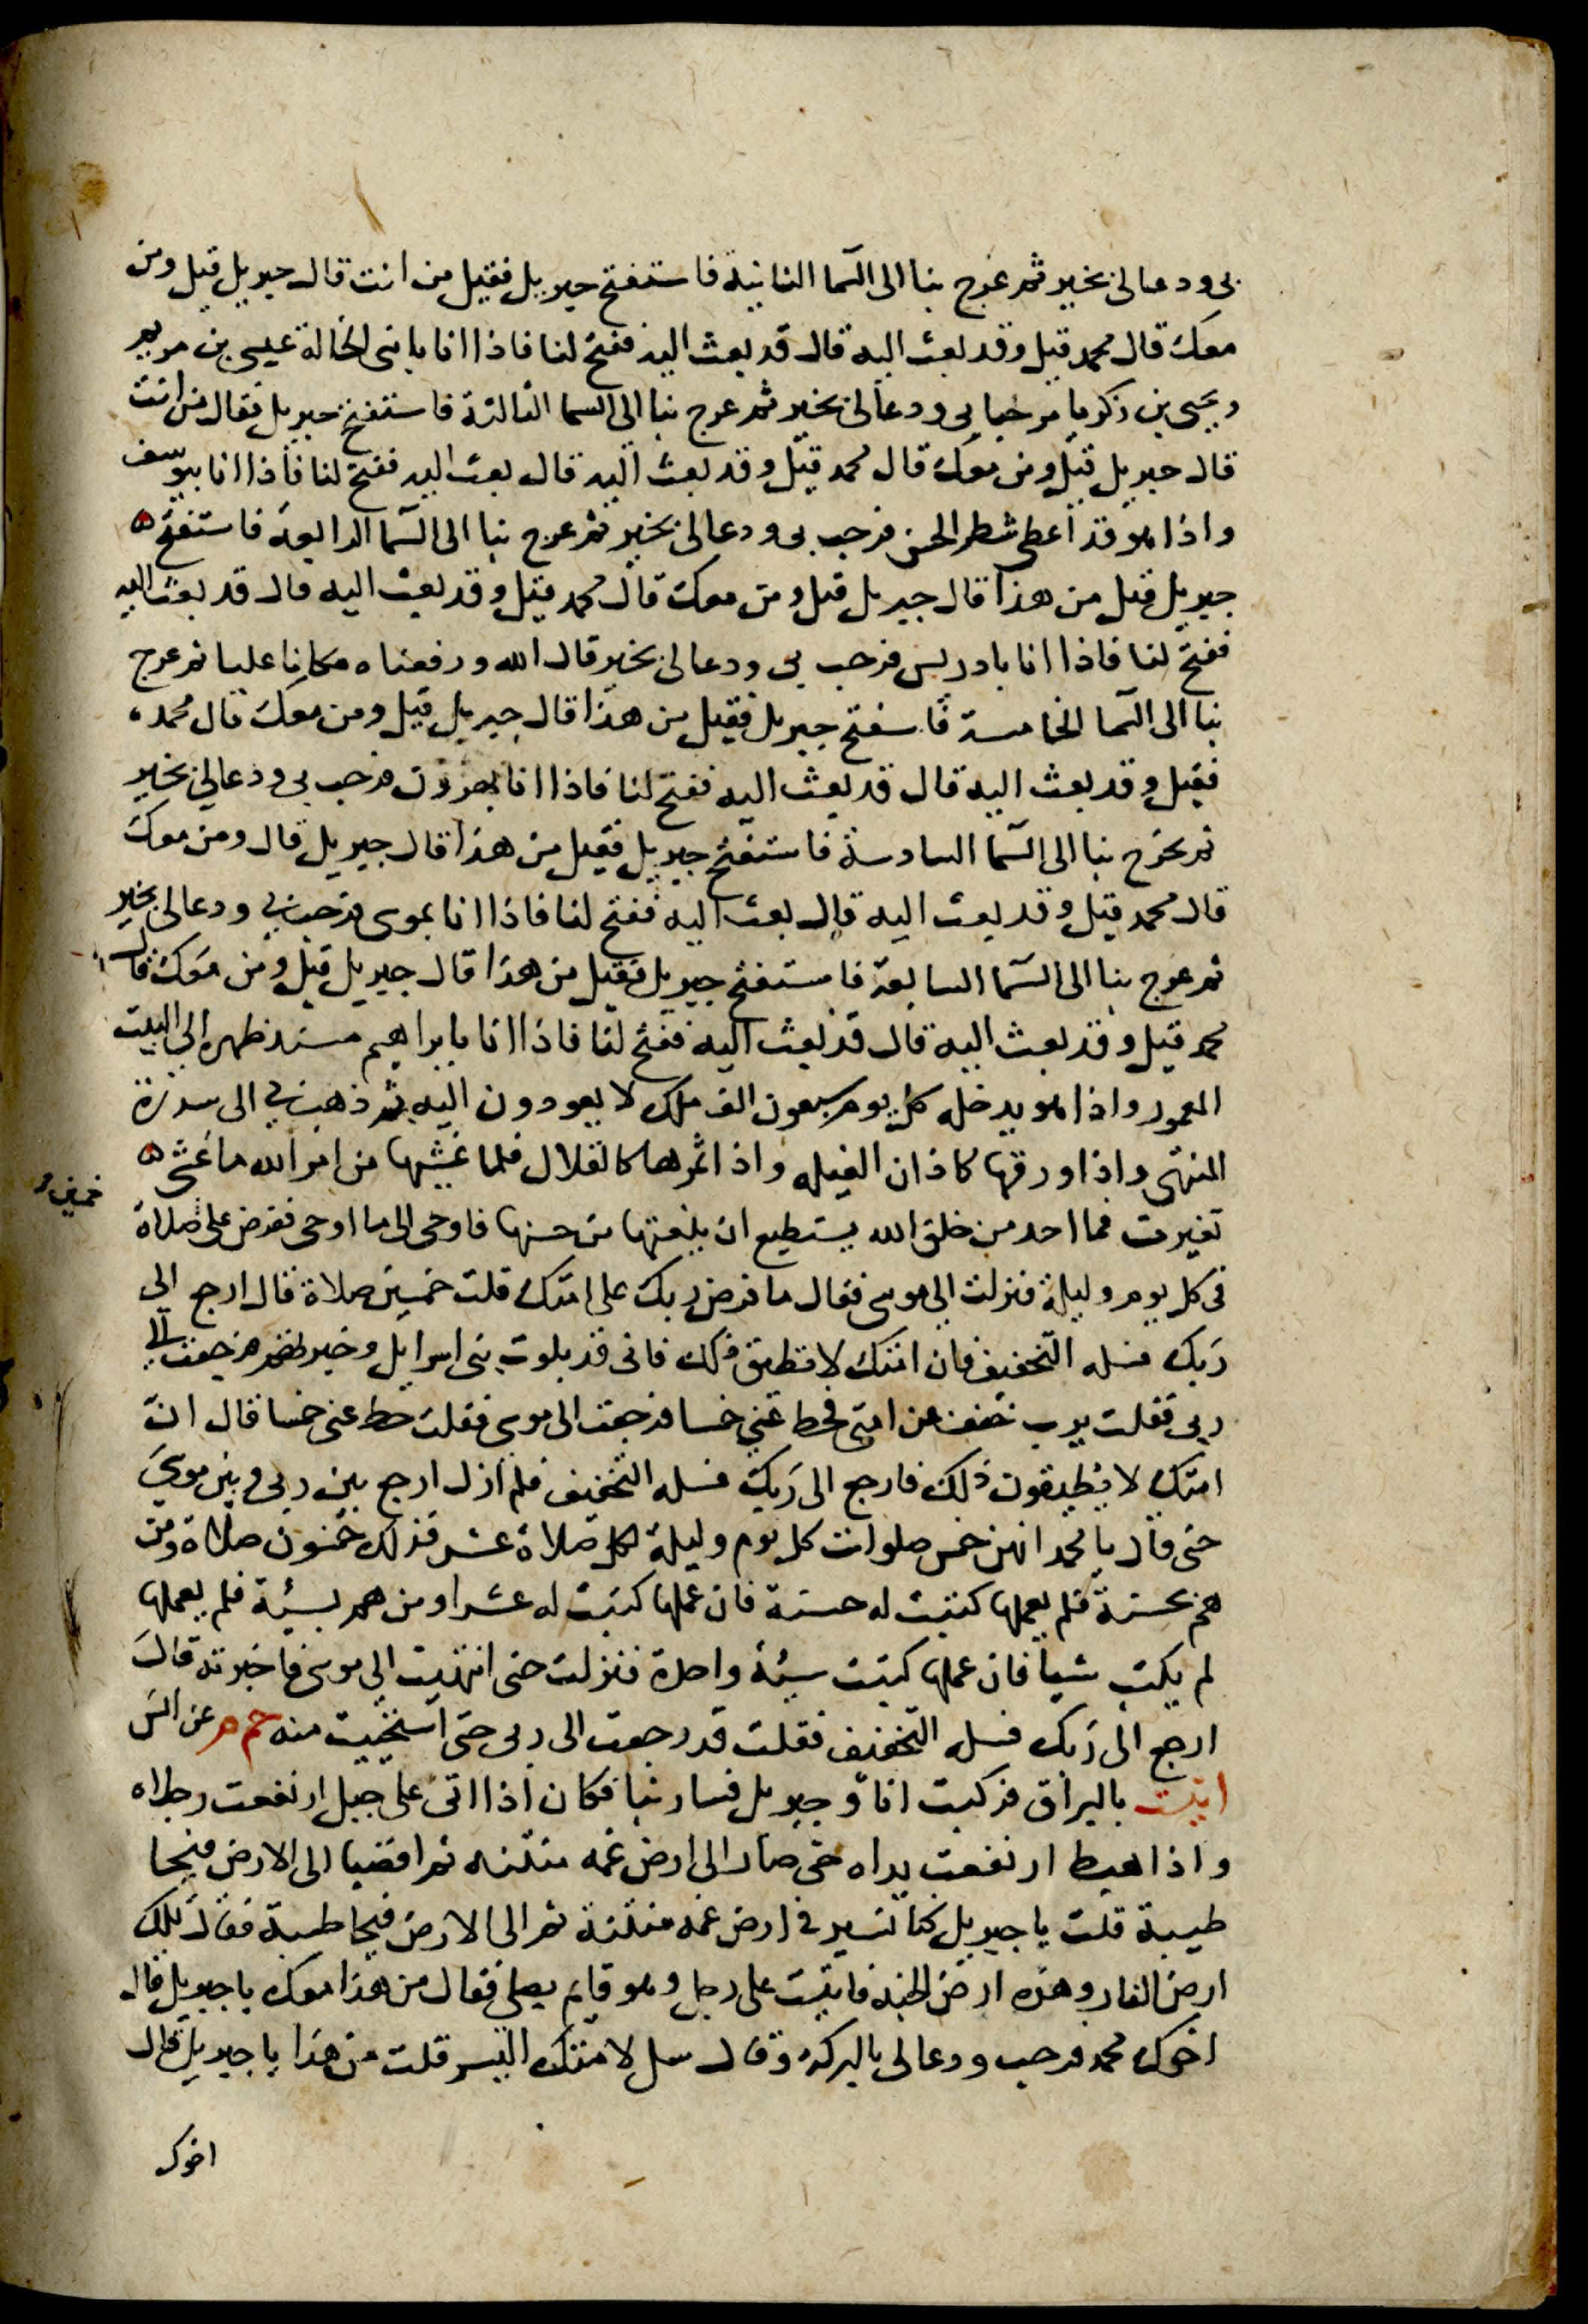 بي ودعا لى بخير ثم عرج بنا الى السما الثانية فاستفتح جبريل فقيل من انت قال جبريل قيل ومن
معك قال محمد قيل وقد بعث اليه قال قد بعث اليه ففتح لنا فاذا انا بابنى الخالة عيسى بن مريم
ويحيى بن زكريا مرحبا بى ودعا لى بخير ثم عرج بنا الى السما الثالثة فاستفتح جبريل فقال من انت
قال جبريل قيل ومن معك قال محمد قيل وقد بعث اليه قال بعث اليه ففتح لنا فاذا انا بيوسف
واذا هو قد اعطى شطر الحسن فرحب بى ودعا لى بخير ثم عرج بنا الى السما الرابعة فاستفتح ه
جبريل قيل من هذا قال جبريل قيل ومن معك قال محمد قيل وقد بعث اليه قال قد بعث اليه
ففتح لنا فاذا انا بادريس فرحب بى ودعا لى بخير قال الله ورفعناه مكانا عليا ثم عرج
بنا الى السما الخامسة فاستفتح جبريل فقيل من هذا قال جبريل قيل ومن معك قال محمد
فقيل وقد بعث اليه قال قد بعث اليه ففتح لنا فاذا انا بهرون فرحب بى ودعا لي بخير
ثم عرج بنا الى السما السادسة فاستفتح جبريل فقيل من هذا قال جبريل قال ومن معك
قال محمد قيل وقد بعث اليه قال بعث اليه ففتح لنا فاذا انا بموسى فرحب بي ودعا لى بخير
ثم عرج بنا الى السما السابعة فاستفتح جبريل فقيل من هذا قال جبريل قيل ومن معك قال
محمد قيل وقد بعث اليه قال قد بعث اليه ففتح لنا فاذا انا بابراهيم مسند ظهره الى البيت
المعمور واذا هو يدخله كل يوم سبعون الف ملك لا يعودون اليه ثم ذهب بي الى سدرة
المنتهى واذا ورقها كاذان الفيله واذا ثمرها كالقلال فلما غشيها من امر الله ما غشى ه
تغيرت فما احد من خلق الله يستطيع ان ينعتها من حسنها فاوحى الى ما اوحى ففرض على صلاة
خمسين
فى كل يوم وليلة فنزلت الى موسى فقال ما فرض ربك على امتك قلت خمسين صلاة قال ارجع الى
ربك فسله التخفيف فان امتك لا تطيق ذلك فانى قد بلوت بنى اسرايل وخبرتهم فرجعت الى
ربى فقلت يرب خفف عن امتى فحط عني خمسا فرجعت الى موسى فقلت حط عنى خمسا قال ان
امتك لا يطيقون ذلك فارجع الى ربك فسله التخفيف فلم ازل ارجع بين ربى وبين موسى
حتى قال يا محمد انهن خمس صلوات كل يوم وليلة لكل صلاة عشر فذلك خمسون صلاة ومن
هم بحسنة فلم يعملها كتبت له حسنة فان عملها كتبت له عشرا ومن هم بسيئة فلم يعملها
لم يكتب شيا فان عملها كتبت سيئة واحدة فنزلت حتى انتهيت الى موسى فاخبرته قال
ارجع الى ربك فسله التخفيف فقلت قد رجعت الى ربى حتى استحييت منه حم م عن انس
اتيت بالبراق فركبت انا و جبريل فسار بنا فكان اذا اتى على جبل ارتفعت رجلاه
واذا هبط ارتفعت يداه حتى صار الى ارض غمه منتنه ثم افضيا الى الارض فيحا
طيبة قلت يا جبريل كنا نسير فى ارض غمه منتنة ثم الى الارض فيحا طيبة فقال تلك
ارض النار وهذه ارض الجنه فاتيت على رجل وهو قايم يصلى فقال من هذا معك يا جبريل قال
اخوك محمد فرحب ودعا لى بالبركه وقال سل لامتك اليسر قلت من هذا يا جبريل قال
اخوك